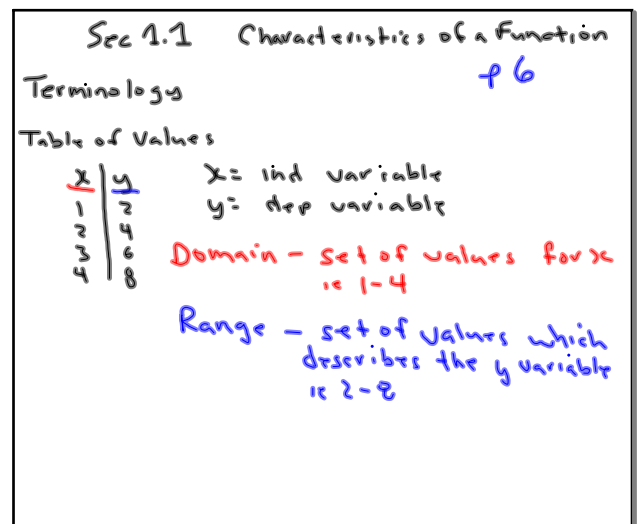 Sec 1.1 Characteristics of a Function
p 6
Terminology
Table of Values
x y x = ind variable
1 2 y = dep variable
2 4
3 6 Domain - set of values for x
4 8 ie 1-4
Range - set of values which
describes the y variable
ie 2-8